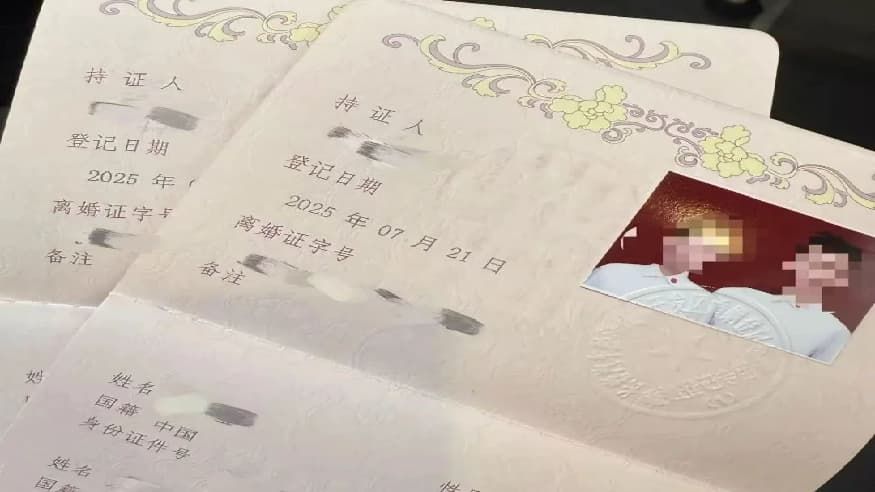 持证人
登记日期
2025 年
离婚证字号
备注
持证人
登记日期
2025 年 07 月 21 日
离婚证字号
备注
姓名
国籍 中国
身份证件号
姓名
国籍